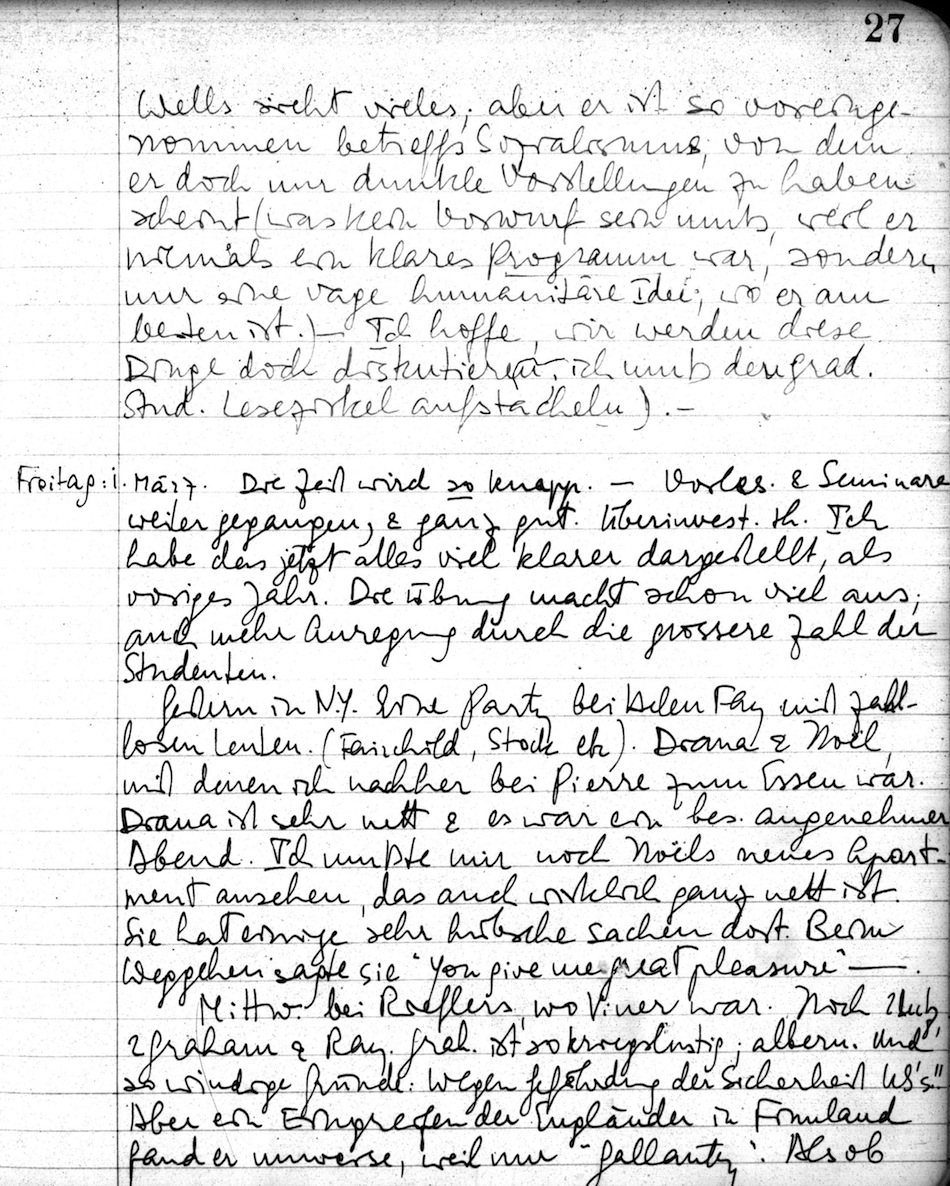 27
Wells sieht vieles; aber er ist so voreinge-
nommen betreffs Sozialismus, von dem
er doch nur dunkle Vorstellungen zu haben
scheint (was kein Vorwurf sein muß, weil er
niemals ein klares Programm war, sondern
nur eine vage humanitäre Idee; wo er am
besten ist.) – Ich hoffe, wir werden diese
Dinge doch diskutieren, ich muß den grad.
Stud. Lesezirkel aufstacheln). –
Freitag: 1. März. Die Zeit wird so knapp. – Vorles. & Seminare
weiter gegangen, & ganz gut. Überinvest. th. Ich
habe das jetzt alles viel klarer dargestellt, als
voriges Jahr. Die Übung macht schon viel aus;
auch mehr Anregung durch die grossere Zahl der
Studenten.
Gestern in N.Y. Eine Party bei Helen Fay mit zahl-
losen Leuten. (Fairchild, Stock etc). Diana & Noël,
mit denen ich nachher bei Pierre zum Essen war.
Diana ist sehr nett & es war ein bes. angenehmer
Abend. Ich mußte mir noch Noëls neues Apart-
ment ansehen, das auch wirklich ganz nett ist.
Sie hat einige sehr hübsche Sachen dort. Beim
Weggehen sagte sie "You give me great pleasure" —.
Mittw. bei Rieflers, wo Viner war. Noch
Graham & Ray. Grah. ist so kriegslustig; albern. Und
so windige Gründe: wegen Gefährdung der Sicherheit US's"
Aber ein Eingreifen der Engländer in Finnland
fand er unweise, weil nur "gallantry". Als ob